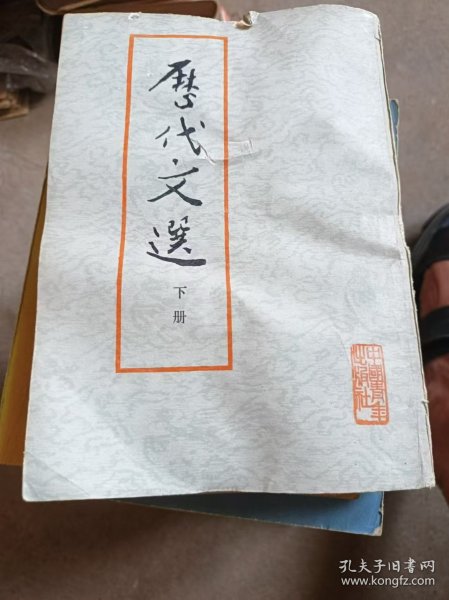 歷代文選
下册
中國青年
出版社
孔夫子旧书网
www.kongfz.com